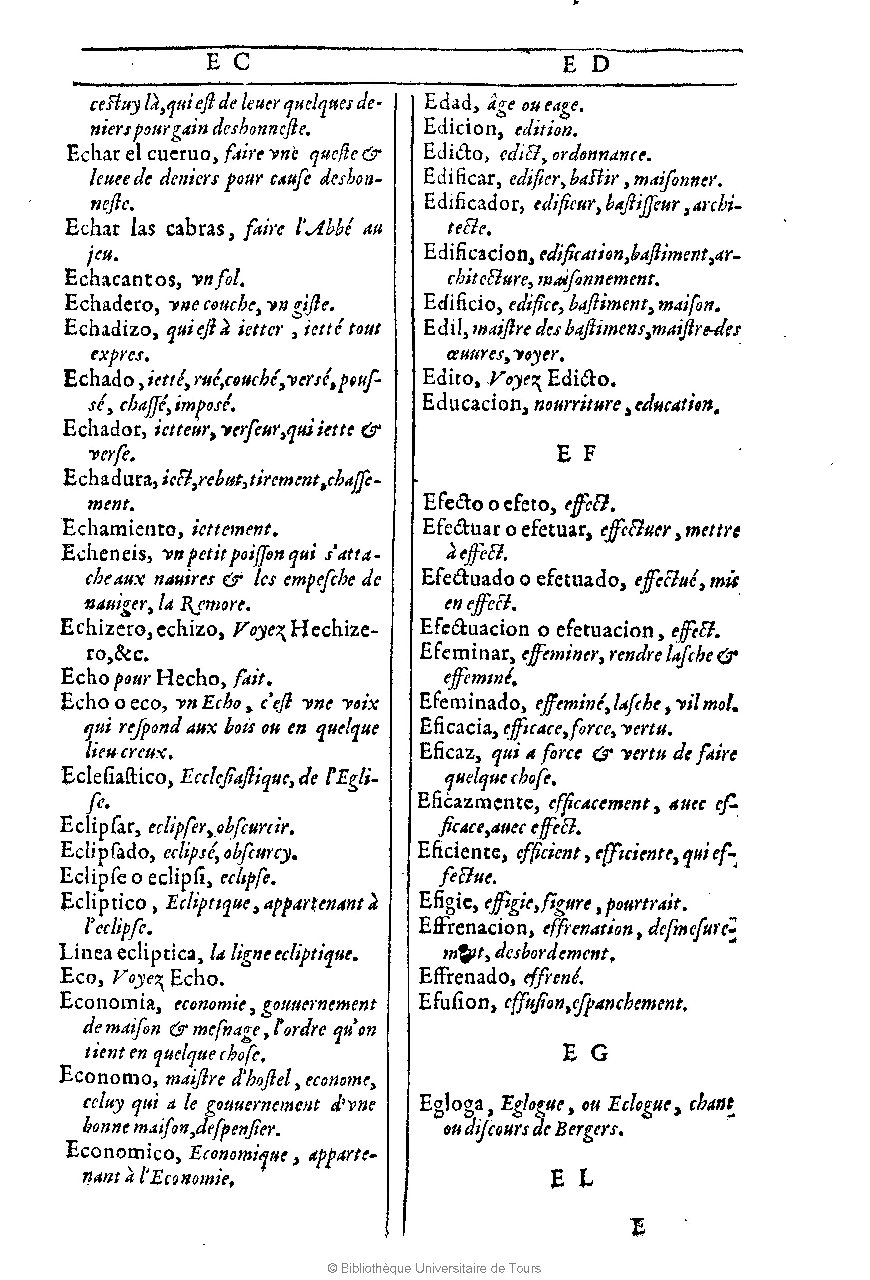 E C
cestuy là, qui est de leuer quelques de-
niers pour gain deshonneste.
Echar el cueruo, faire vne queste &
leuee de deniers pour cause deshon-
neste.
Echar las cabras, faire l'Abbé au
jeu.
Echacantos, vn fol.
Echadero, vne couche, vn giste.
Echadizo, qui est à ietter, ietté tout
expres.
Echado, ietté, rué, couché, versé, pous-
sé, chassé, imposé.
Echador, ietteur, verseur, qui iette &
verse.
Echadura, iect, rebut, tirement, chasse-
ment.
Echamiento, iettement.
Echeneis, vn petit poisson qui s'atta-
che aux nauires & les empesche de
nauiger, la Remore.
Echizero, echizo, Voyez Hechize-
ro, &c.
Echo pour Hecho, fait.
Echo o eco, vn Echo, c'est vne voix
qui respond aux bois ou en quelque
lieu creux.
Eclesiastico, Ecclesiastique, de l'Egli-
se.
Eclipsar, eclipser, obscurcir.
Eclipsado, eclipsé, obscurcy.
Eclipse o eclipsi, eclipse.
Ecliptico, Ecliptique, appartenant à
l'eclipse.
Linea ecliptica, la ligne ecliptique.
Eco, Voyez Echo.
Economia, economie, gouuernement
de maison & mesnage, l'ordre qu'on
tient en quelque chose.
Economo, maistre d'hostel, econome,
celuy qui a le gouuernement d'vne
bonne maison, despensier.
Economico, Economique, apparte-
nant à l'Economie.
E D
Edad, âge ou eage.
Edicion, edition.
Edicto, edict, ordonnance.
Edificar, edifier, bastir, maisonner.
Edificador, edifieur, bastisseur, archi-
tecte.
Edificacion, edification, bastiment, ar-
chitecture, maisonnement.
Edificio, edifice, bastiment, maison.
Edil, maistre des bastimens, maistre des
œuures, voyer.
Edito, Voyez Edicto.
Educacion, nourriture, education.
E F
Efecto o efeto, effect.
Efectuar o efetuar, effectuer, mettre
à effect.
Efectuado o efetuado, effectué, mis
en effect.
Efectuacion o efetuacion, effect.
Efeminar, effeminer, rendre lasche &
effeminé.
Efeminado, effeminé, lasche, vil mol.
Eficacia, efficace, force, vertu.
Eficaz, qui a force & vertu de faire
quelque chose.
Eficazmente, efficacement, auec ef-
ficace, auec effect.
Eficiente, efficient, efficiente, qui ef-
fectue.
Efigie, effigie, figure, pourtrait.
Effrenacion, effrenation, desmesure-
ment, desbordement.
Effrenado, effrené.
Efusion, effusion, espanchement.
E G
Egloga, Eglogue, ou Eclogue, chant
ou discours de Bergers.
E L
E
© Bibliothèque Universitaire de Tours